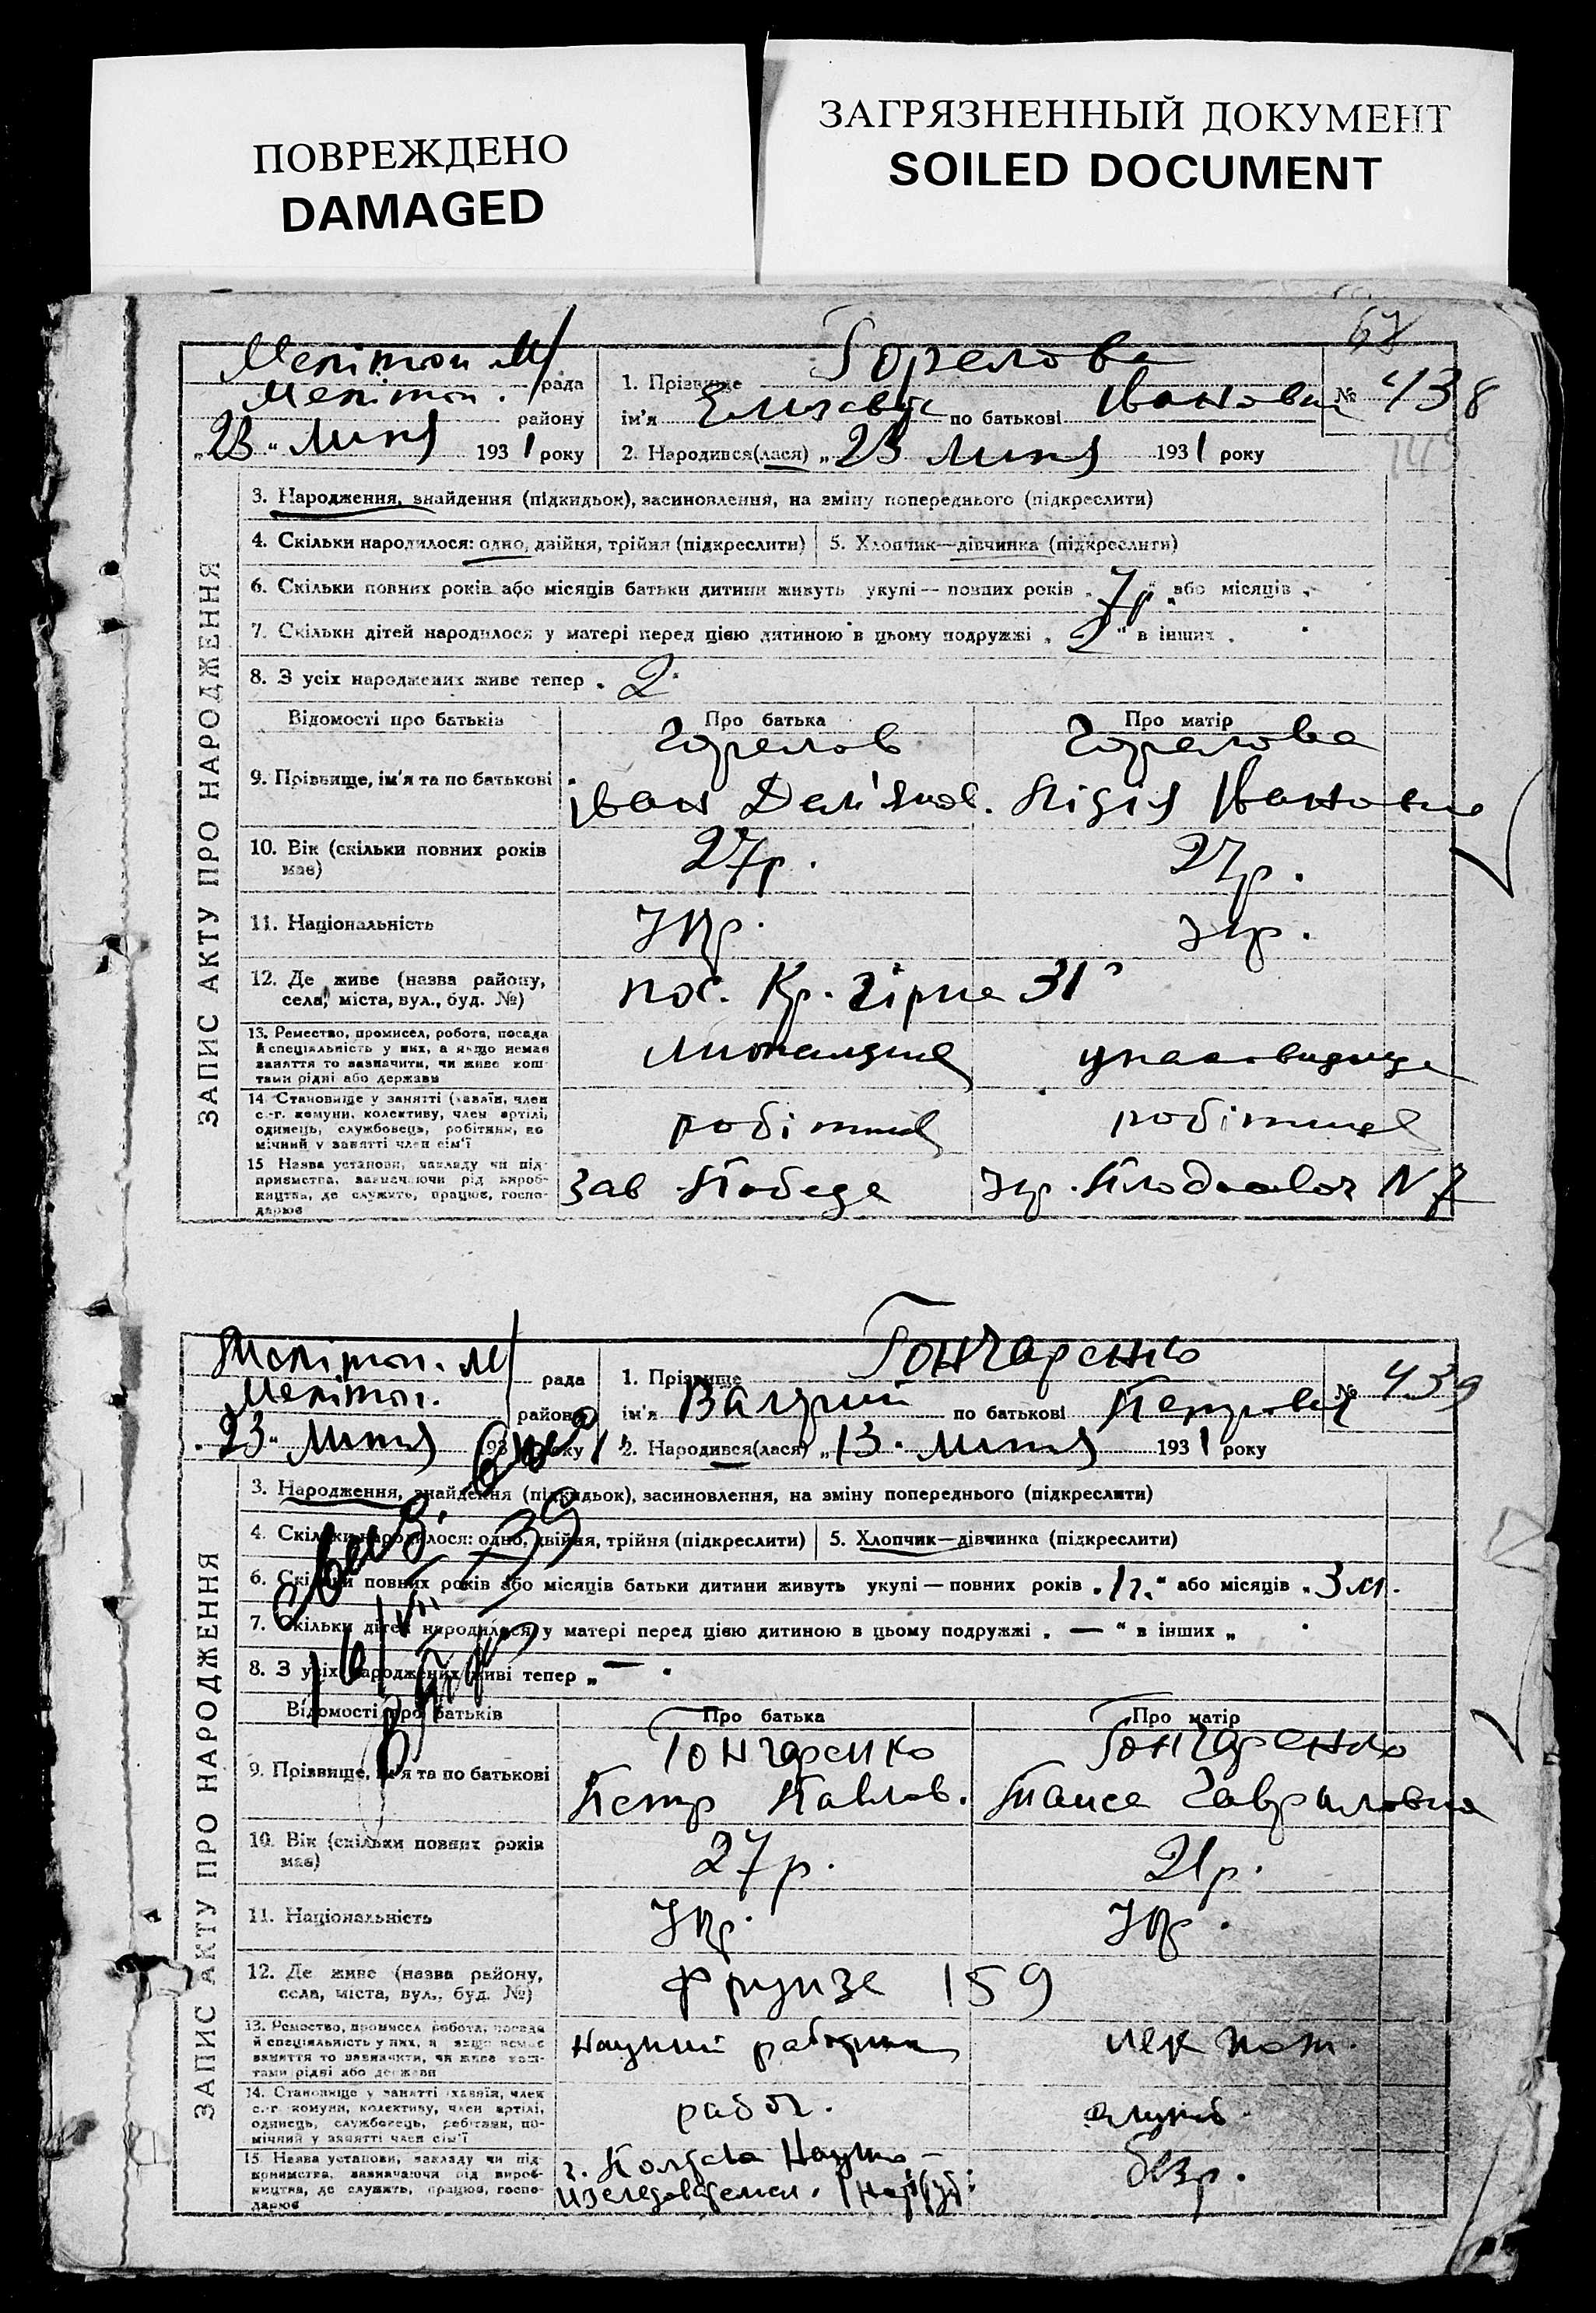 ПОВРЕЖДЕНО
DAMAGED
ЗАГРЯЗНЕННЫЙ ДОКУМЕНТ
SOILED DOCUMENT
67
Мелітоп. М/рада
Мелітоп. району
„23“ Липня 1931 року
1. Прізвище Горелова
ім'я по батькові Івановна
№ 438
2. Народився(лася) „23 Липня 1931 року
ЗАПИС АКТУ ПРО НАРОДЖЕННЯ
3. Народження, знайдення (підкидьок), засиновлення, на зміну попереднього (підкреслити)
4. Скільки народилося: одно, двійня, трійня (підкреслити)
5. Хлопчик—дівчинка (підкреслити)
6. Скільки повних років або місяців батьки дитини живуть укупі — повних років „7р.“ або місяців „
7. Скільки дітей народилося у матері перед цією дитиною в цьому подружжі „2“ в інших „
8. З усіх народжених живе тепер „2
Відомості про батьків
Про батька
Про матір
9. Прізвище, ім'я та по батькові
Горелов
Іван Дем'янов.
Горелова
Лідія Івановна
10. Вік (скільки повних років має)
27р.
27р.
11. Національність
Укр.
Укр.
12. Де живе (назва району, села, міста, вул., буд. №)
пос. Кр. Гірка 31
13. Ремество, промисел, робота, посада
й спеціяльність у них, а якщо немає
заняття то зазначити, чи живе кош-
тами рідні або держави
14. Становище у занятті (хазяїн, член
с.-г. комуни, колективу, член артілі,
одинець, службовець, робітник, по
мічний у занятті член сім'ї
робітник
робітниця
15. Назва установи, закладу чи під-
приємства, зазначаючи рід вироб-
ництва, де служить, працює, госпо-
дарює
Зав Победа
N 7
Мелітоп. М/рада
Мелітоп. району
„23“ Липня 193 року
1. Прізвище Гончаренко
ім'я Валерий по батькові Петрович
№ 439
2. Народився(лася) „13“ Липня 1931 року
ЗАПИС АКТУ ПРО НАРОДЖЕННЯ
3. Народження, знайдення (підкидьок), засиновлення, на зміну попереднього (підкреслити)
4. Скільки народилося: одно, двійня, трійня (підкреслити)
5. Хлопчик—дівчинка (підкреслити)
6. Скільки повних років або місяців батьки дитини живуть укупі — повних років „1г.“ або місяців „3м.
7. Скільки дітей народилося у матері перед цією дитиною в цьому подружжі „—“ в інших „
8. З усіх народжених живі тепер „—
Відомості про батьків
Про батька
Про матір
9. Прізвище, ім'я та по батькові
Гончаренко
Петр Павлов.
Гончаренко
Таиса Гавриловна
10. Вік (скільки повних років має)
27р.
21р.
11. Національність
Укр.
Укр.
12. Де живе (назва району, села, міста, вул., буд. №)
Фрунзе 159
13. Ремество, промисел, робота, посада
й спеціяльність у них, а якщо немає
заняття то зазначити, чи живе кош-
тами рідні або держави
Научний работник
14. Становище у занятті (хазяїн, член
с.-г. комуни, колективу, член артілі,
одинець, службовець, робітник, по-
мічний у занятті член сім'ї
работ.
15. Назва установи, закладу чи під-
приємства, зазначаючи рід вироб-
ництва, де служить, працює, госпо-
дарює
безр.